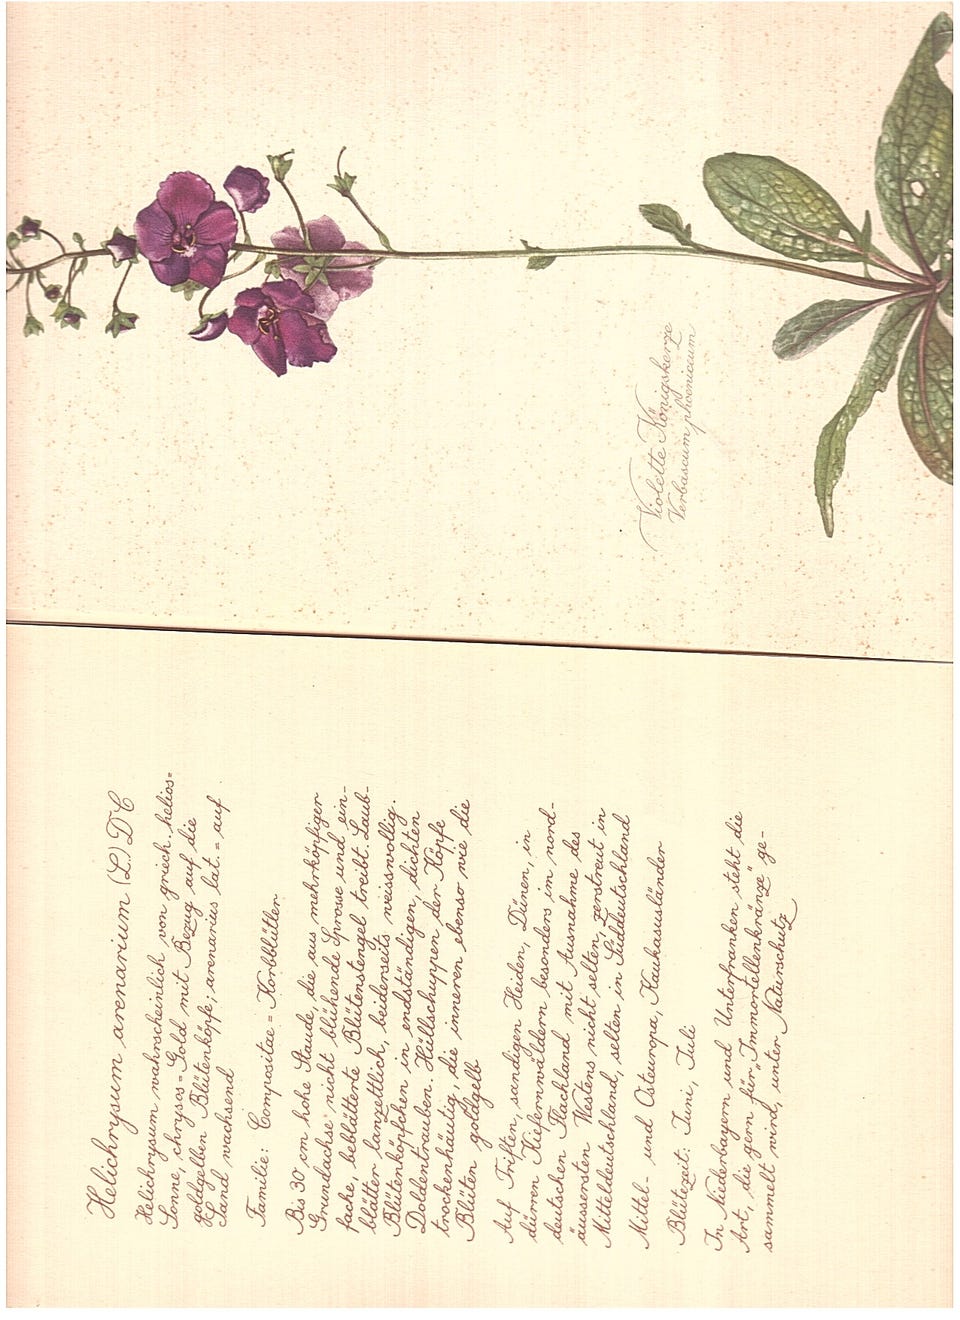 Violette Königskerze
Verbascum phoeniceum
Helichrysum arenarium (L.) DC
Helichrysum wahrscheinlich von griech. helios=
Sonne, chrysos = Gold mit Bezug auf die
goldgelben Blütenköpfe; arenarius lat. = auf
Sand wachsend
Familie: Compositae = Korbblütler
Bis 30 cm hohe Staude, die aus mehrköpfiger
Grundachse nicht blühende Sprosse und ein-
fache, beblätterte Blütenstengel treibt. Laub-
blätter lanzettlich, beiderseits weisswollig.
Blütenköpfchen in endständigen, dichten
Doldentrauben. Hüllschuppen der Köpfe
trockenhäutig, die inneren ebenso wie die
Blüten goldgelb
Auf Triften, sandigen Heiden, Dünen, in
dürren Kiefernwäldern besonders im nord-
deutschen Flachland mit Ausnahme des
äussersten Westens nicht selten, zerstreut in
Mitteldeutschland, selten in Süddeutschland
Mittel- und Osteuropa, Kaukasusländer
Blütezeit: Juni, Juli
In Niederbayern und Unterfranken steht die
Art, die gern für „Immortellenkränze" ge-
sammelt wird, unter Naturschutz